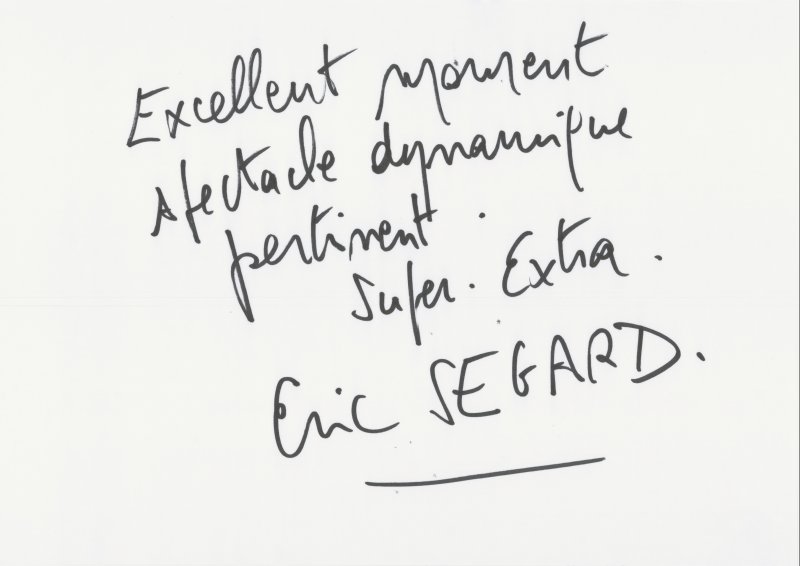 Excellent moment
spectacle dynamique
pertinent.
Super. Extra.
Eric SEGARD.